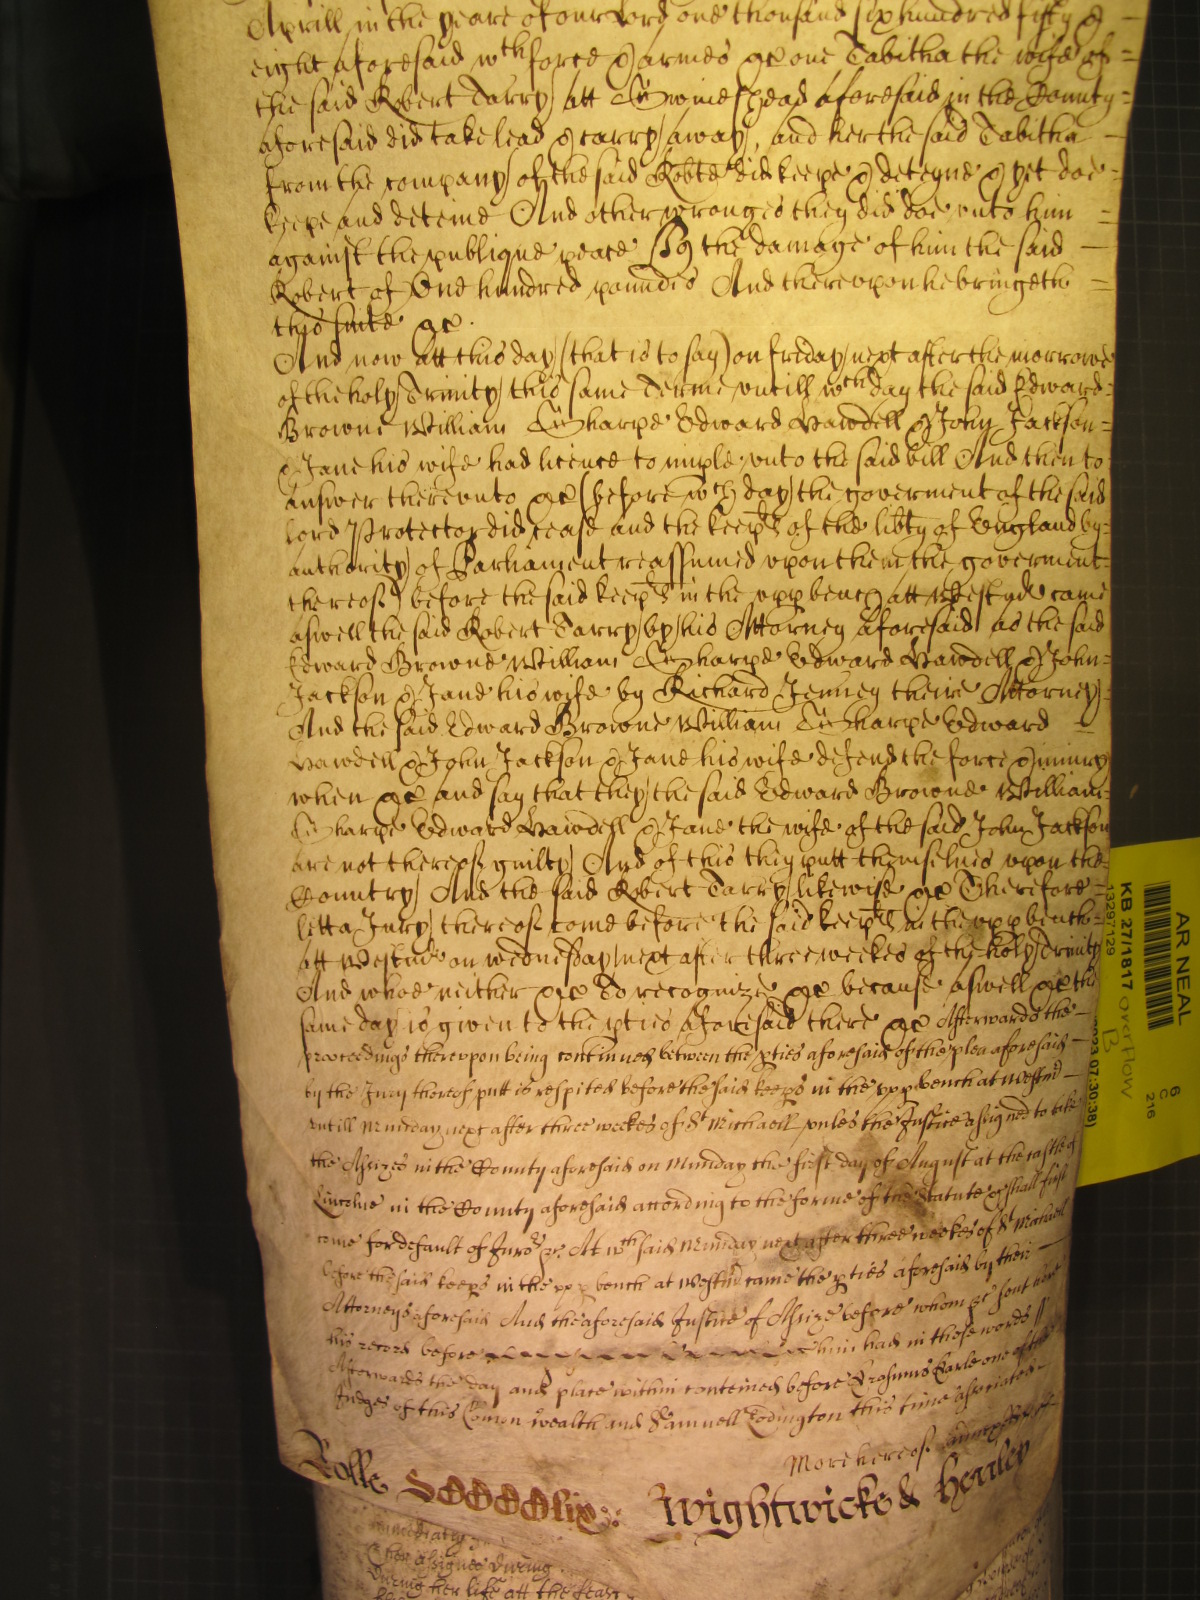 Aprill in the yeare of our Lord one thousand six hundred fifty &
eight aforesaid wth force & armes &c one Tabitha the wife of
the said Robert Tarry att Swineshead aforesaid in the County
aforesaid did take lead & carry away, and her the said Tabitha
from the company of the said Robte did keepe & deteyne & yet doe
keepe and deteine And other wronges they did doe unto him
against the publique peace To the damage of him the said
Robert of One hundred poundes And thereupon he bringeth
this suite &c.
And now att this day (that is to say) on fryday next after the morrowe
of the holy Trinity this same Terme untill wch day the said Edward
Browne William Sharpe Edward Hawdell & John Jackson
& Jane his wife had licence to imple unto the said bill And then to
answer thereunto &c (before wch day the goverment of the said
lord Protector did cease and the keeprs of the libty of England by
authority of Parliament reassumed upon them the goverment
thereof) before the said keeprs in the upp bench att Westmr came
aswell the said Robert Tarry by his Attorney aforesaid as the said
Edward Browne William Sharpe Edward Hawdell & John
Jackson & Jane his wife by Richard Jenney theire Attorney
And the said Edward Browne William Sharpe Edward
Hawdell & John Jackson & Jane his wife defend the force & iniury
when &c and say that they the said Edward Browne William
Sharpe Edward Hawdell & Jane the wife of the said John Jackson
are not thereof guilty And of this they putt themselves upon the
Country And the said Robert Tarry likewise &c Therefore
lett a Jury thereof come before the said keeprs in the upp bench
att Westmr on wednesday next after three weekes of the holy Trinity
And whoe neither &c To recognize &c because aswell &c the
same day is given to the pties aforesaid there &c Afterwards the
proceedings thereupon being continued betweene the pties aforesaid of the plea aforesaid
by the Jury thereof putt is respited before the said keeps in the upp bench at Westmr
untill Munday next after three weekes of St Michaell unles the Justices assigned to take
the Assizes in the County aforesaid on Munday the first day of August at the castle of
Lincolne in the County aforesaid according to the forme of the Statute &c shall first
come for default of Jurors &c At wch said Munday next after three weekes of St Michaell
before the said keeps in the upp bench at Westmr came the pties aforesaid by their
Attorneys aforesaid And the aforesaid Justice of Assize before whom &c sent here
his record before him had in these words //
Afterwards the day and place within conteined before Erasmus Earle one of the
Judges of this Comon wealth and Samuell Eddington this time associated
More hereof
Rolle Wightwicke & Henley
immediatly
Cher assignes during
During her life att the feast
AR NEAL
KB 27/1817 overflow
13297129
B
6
C
216
2023 07:30:38)